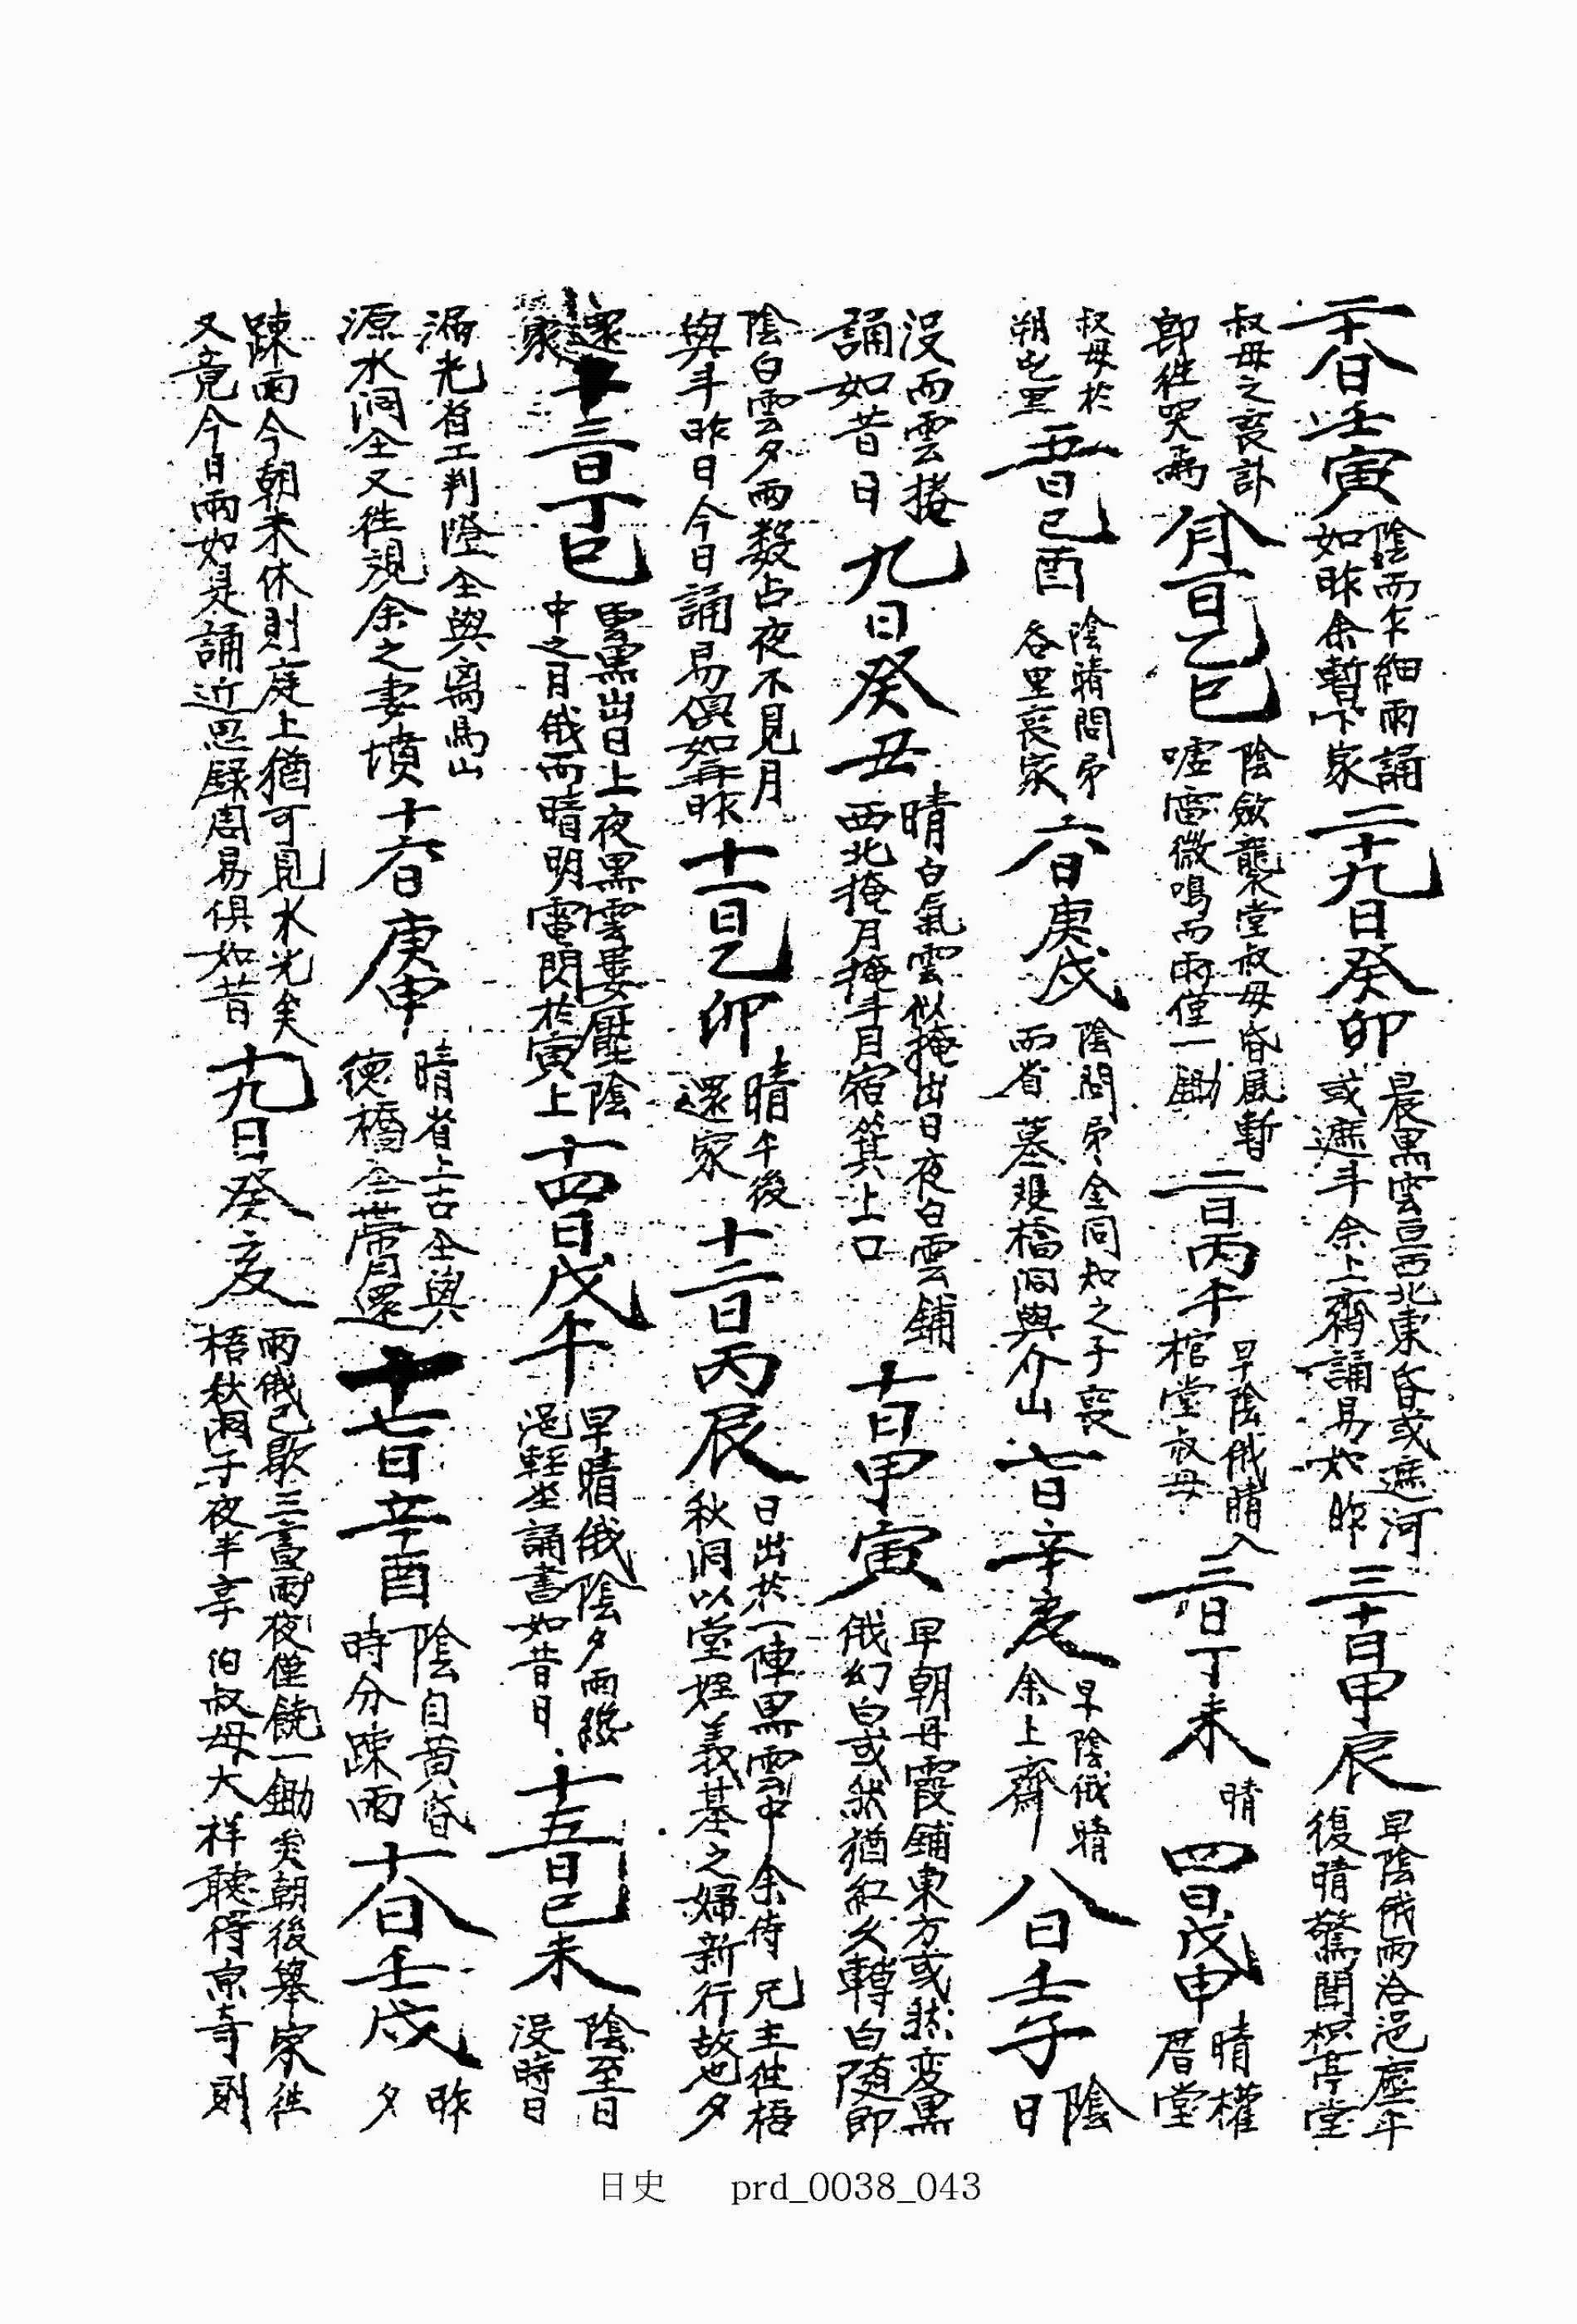 二十八日壬寅 陰而乍細雨誦如昨余暫下家 二十九日癸卯 晨黑雲亘西北東昏或遮河或遮斗余上齋誦易如昨 三十日甲辰 早陰俄雨浴浥塵午復晴驚聞枳亭堂
叔母之喪訃卽徃哭焉 八月一日乙巳 陰斂襲堂叔母昏風暫嘘雷微鳴而雨僅一鋤 二日丙午 早陰俄晴入棺堂叔母 三日丁未 晴 四日戊申 晴權厝堂
叔母於朔屯里 五日己酉 陰晴問弔各里喪家 六日庚戌 陰問弔金同知之子喪而省墓 橋洞與介山 七日辛亥 早陰俄晴余上齋 八日壬子 陰日
沒而雲捲誦如昔日 九日癸丑 晴白氣雲似掩出日夜白雲鋪西北掩月掩斗月宿箕上口 十日甲寅 早朝丹霞鋪東方或然变黑俄幻白或然猶紅久轉白随即
陰白雲夕雨数占夜不見月與斗昨日今日誦易俱如再昨 十一日乙卯 晴午後還家 十二日丙辰 日出於一陣黑雲中余侍 兄主徃梧秋洞以堂姪義基之婦新行故也夕
還家 十三日丁巳 雲黑出日上夜黑雲婁壓陰中之月俄而晴明電閃於寅上 十四日戊午 早晴俄陰夕雨終浥輕坐誦書如昔日 十五日己未 陰至日没時日
漏光省工判墱仝與离馬山源水洞仝又徃視余之妻墳 十六日庚申 晴省上古仝與德橋仝帶月還 十七日辛酉 陰自黄昏時分疎雨 十八日壬戌 昨夕
疎雨今朝未休則庭上猶可見水光矣又竟今日雨如是誦近思録周易俱如昔 十九日癸亥 雨俄已歇三晝雨夜僅饒一鋤矣朝後擧家徃梧秋洞子夜半享 伯叔母大祥聽得京奇則
日史 prd_0038_043